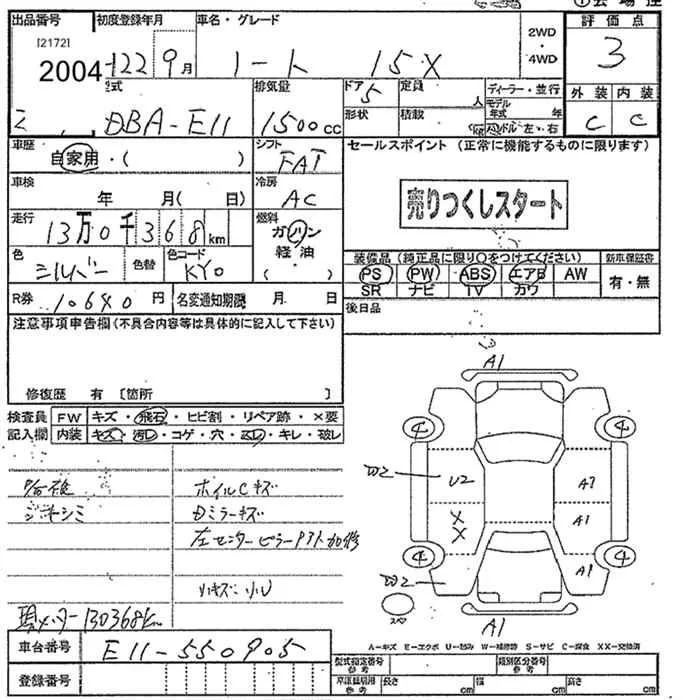 出品番号 初度登録年月 車名・グレード 2WD・4WD 評価点
[2172]
2004 22 9月 ノート 15X 3
型式 排気量 ドア 5 定員 人 ディーラー・並行 外装 内装
DBA-E11 1500cc 形状 積載 kg モデル年式 年 ハンドル 左・右 C C
車歴 自家用・( ) シフト FAT セールスポイント (正常に機能するものに限ります)
車検 年 月( 日) 冷房 AC 売りつくしスタート
走行 13万0千368km 燃料 ガソリン 軽油 ( )
装備品 (純正品に限り○をつけてください) 新車保証書
色 シルバー 色替 色コード KY0 PS PW ABS エアB AW 有・無
SR ナビ TV カワ
R券 10640円 名変通知期限 月 日 後日品
注意事項申告欄(不具合内容等は具体的に記入して下さい)
修復歴 有 〔箇所 〕
検査員記入欄 FW キズ・飛石・ヒビ割・リペア跡・×要
内装 キズ・汚レ・コゲ・穴・スレ・キレ・破レ
ホイルCキズ
ジキシミ
ドミラーキズ
左センターピラー
現メーター130368km
車台番号 E11-550905
登録番号
A1
4 4
W2 U2 A2
X X A1
4 4
W2 A1
スペア
A1
A-キズ E-エクボ U-凹み W-補修跡 S-サビ C-腐食 XX-交換済
型式指定番号 参考 類別区分番号 参考
車庫証明用 参考 長さ cm 幅 cm 高さ cm